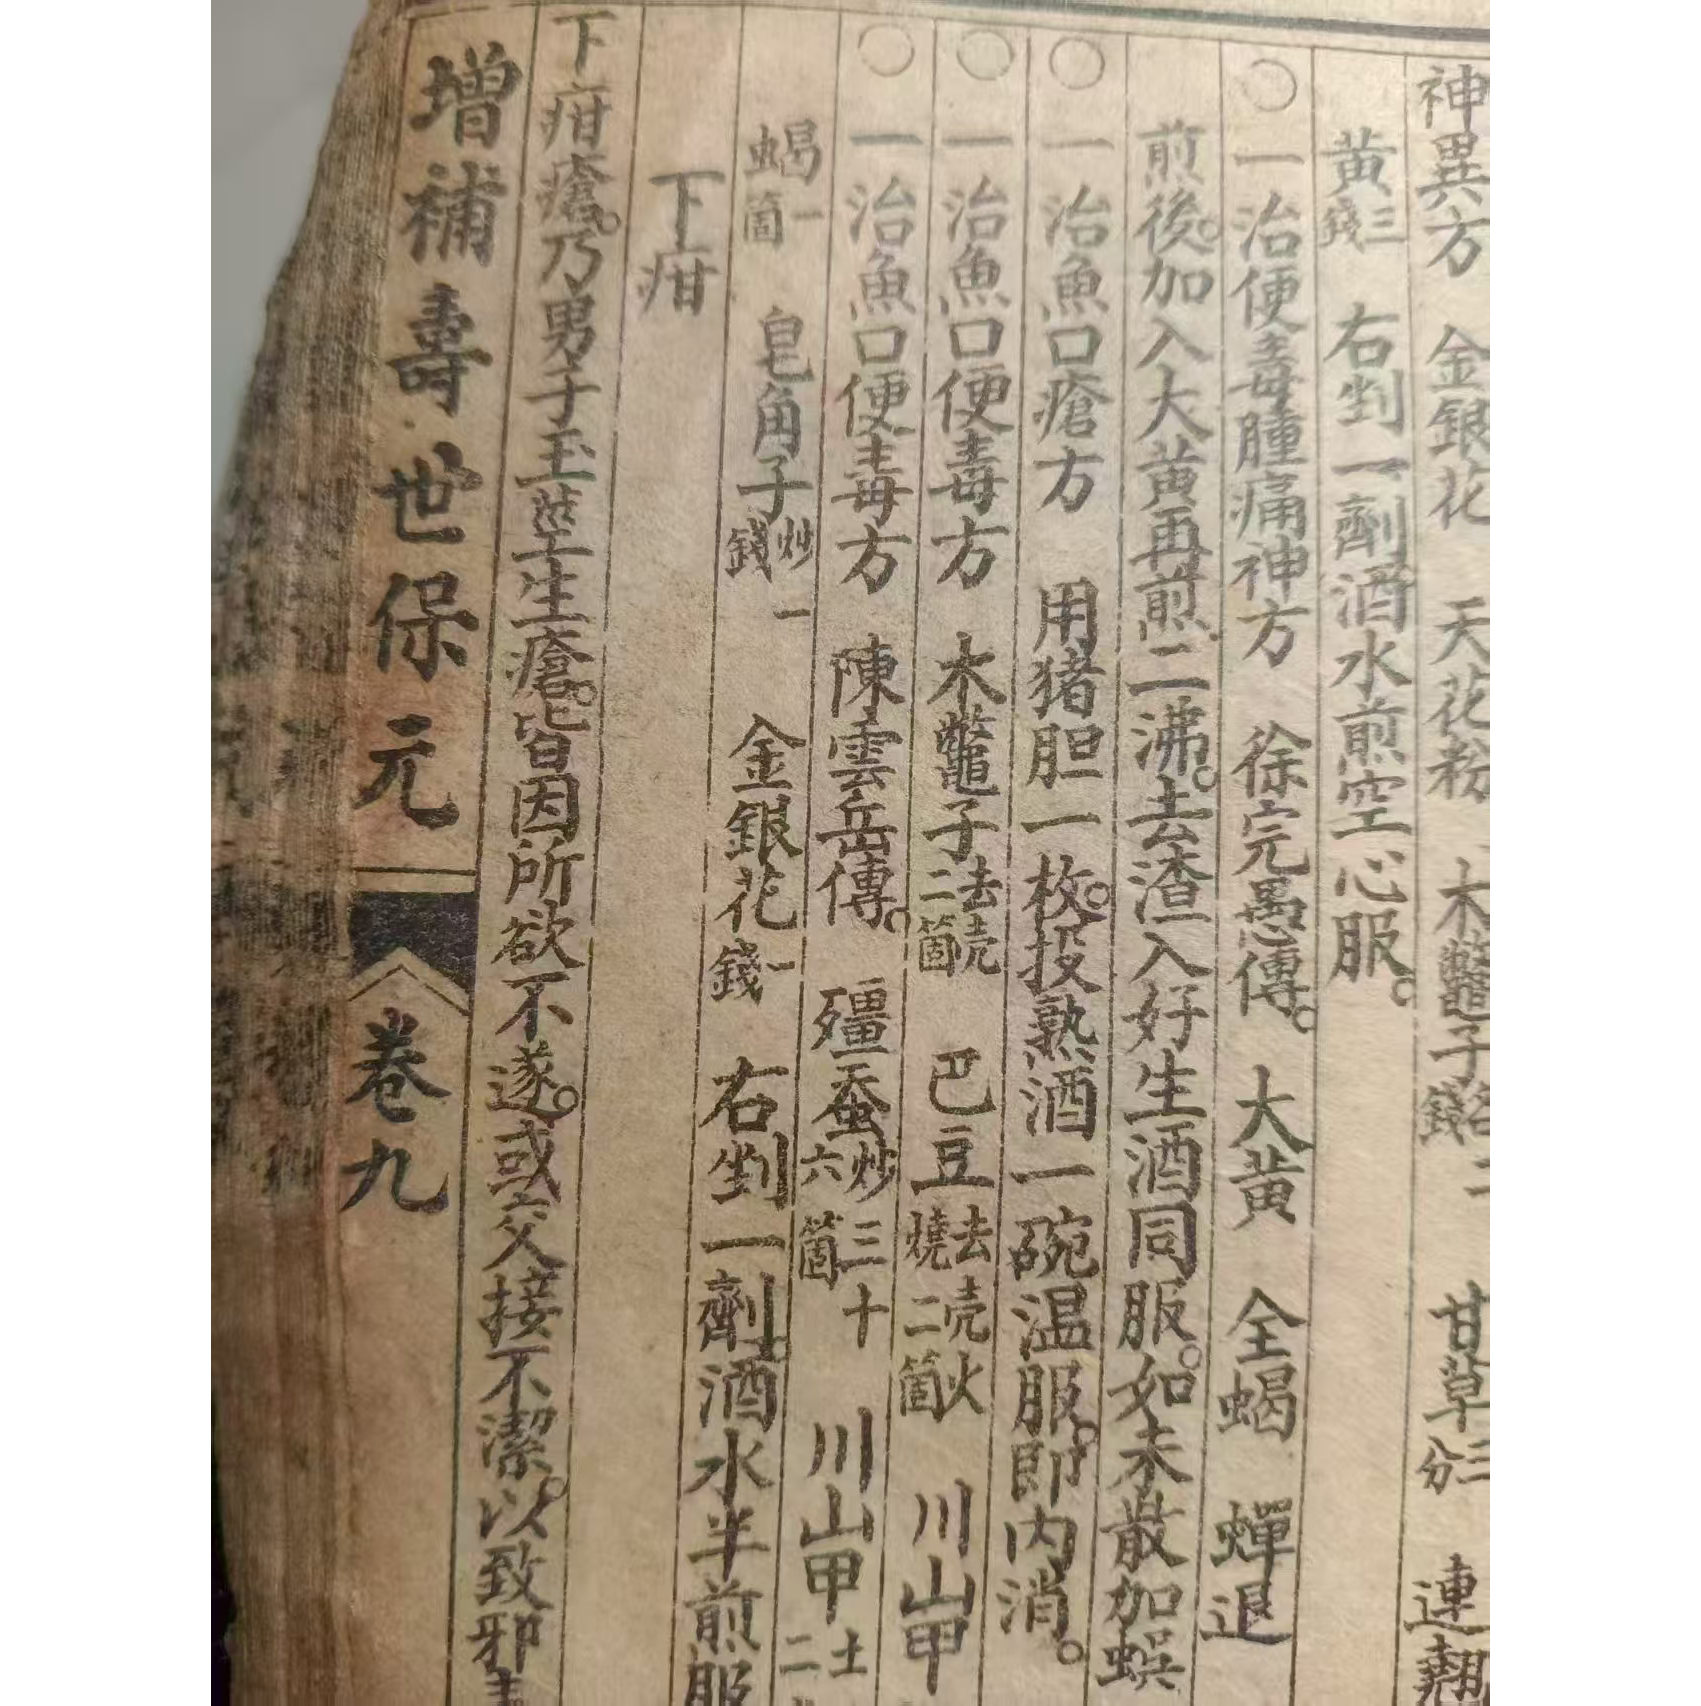 神異方　金銀花　天花粉　木鱉子各二錢　甘草三分　連翹
黄三錢　右剉一劑酒水煎空心服。
○一治便毒腫痛神方　徐完愚傳。　大黄　全蝎　蟬退
煎後。加入大黄再煎二沸。去渣入好生酒同服。如未散加蜈
○一治魚口瘡方　用猪胆一枚。投熟酒一碗温服。即内消。
○一治魚口便毒方　木鱉子去壳二箇　巴豆去壳火燒二箇　川山甲
○一治魚口便毒方　陳雲岳傳。　殭蚕炒三十六箇　川山甲土二
蝎一箇　皂角子炒一錢　金銀花一錢　右剉一劑。酒水半煎服
下疳
下疳瘡。乃男子玉莖生瘡。皆因所欲不遂。或交接不潔。以致邪
增補壽世保元　卷九